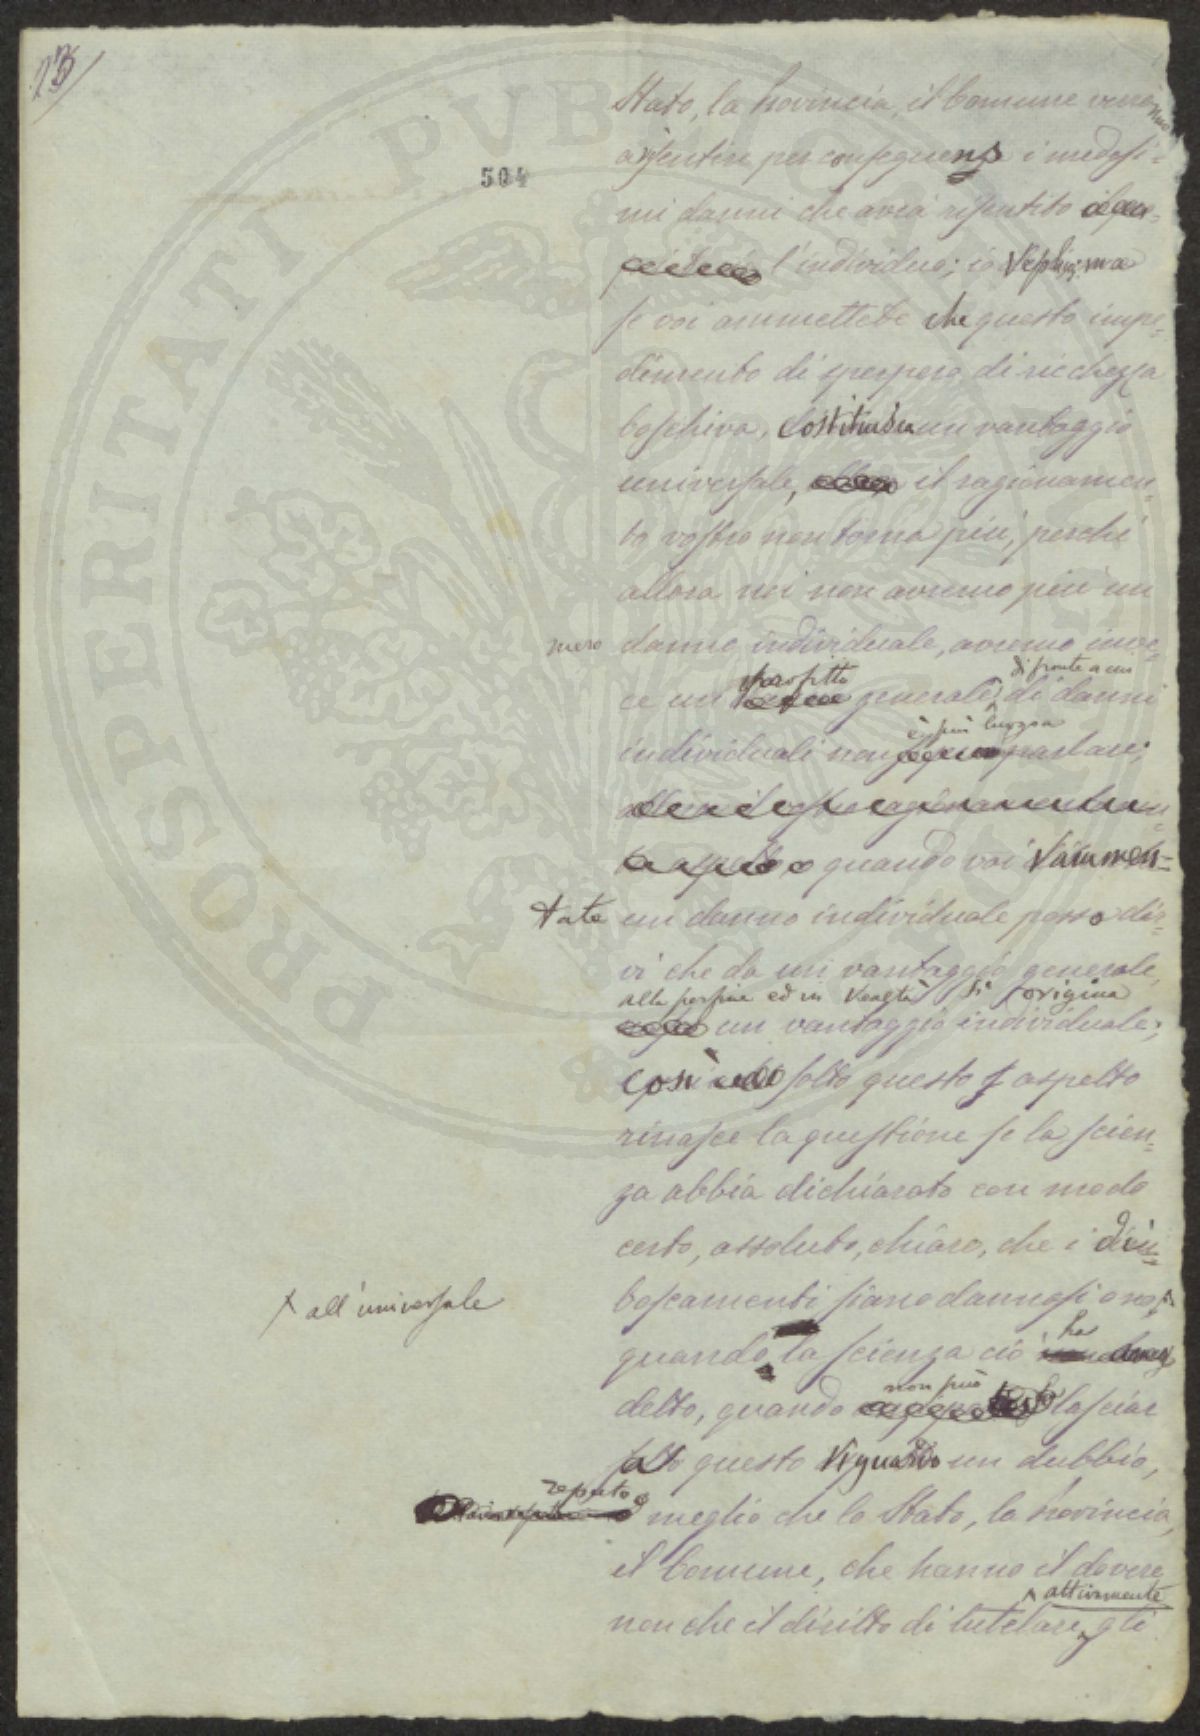 13
504
Stato, la Provincia, il Comune verranno
a risentire per conseguenza i medesi-
mi danni che avea risentito
l'individuo; io replico; ma
se voi ammettete che questo impe-
dimento di sperpero di ricchezza
boschiva, costituisca un vantaggio
universale, il ragionamen-
to vostro non torna più, perché
allora noi non avremo più un
mero danno individuale, avremo inve-
ce un profitto generale, di fronte a cui di danni
individuali non è più luogo a parlare;
quando voi rammen-
tate un danno individuale posso dir-
vi che da un vantaggio generale
alla perfine ed in realtà si origina
un vantaggio individuale;
così sotto questo aspetto
rinasce la questione se la scien-
za abbia dichiarato con modo
certo, assoluto, chiaro, che i disu-
boscamenti siano dannosi o no
all'universale
quando la scienza ciò ha
detto, quando non può lasciar
sotto questo riguardo un dubbio,
reputo meglio che lo Stato, la Provincia,
il Comune, che hanno il dovere
non che il diritto di tutelare attivamente gli
PROSPERITATI PUBLICAE